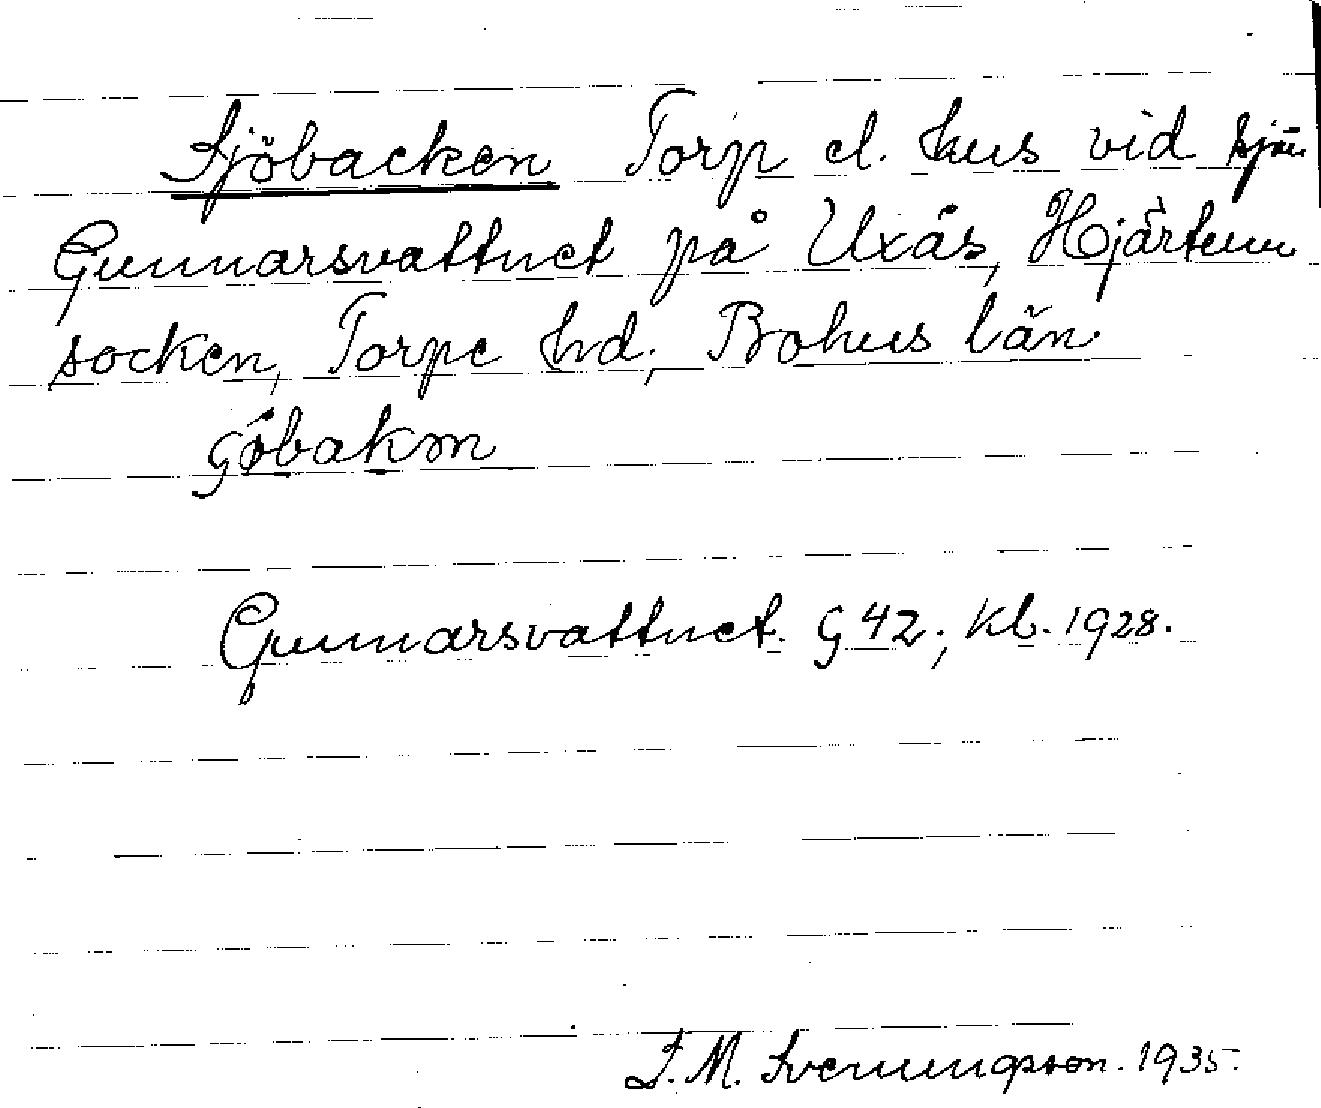 Sjöbacken Torp el. hus vid sjön
Gunnarsvattnet på Uxås, Hjärtum
socken, Torpe hd; Bohus län
Gunnarsvattnet. G 42; Kb. 1928.
S. M. Svenungsson. 1935.